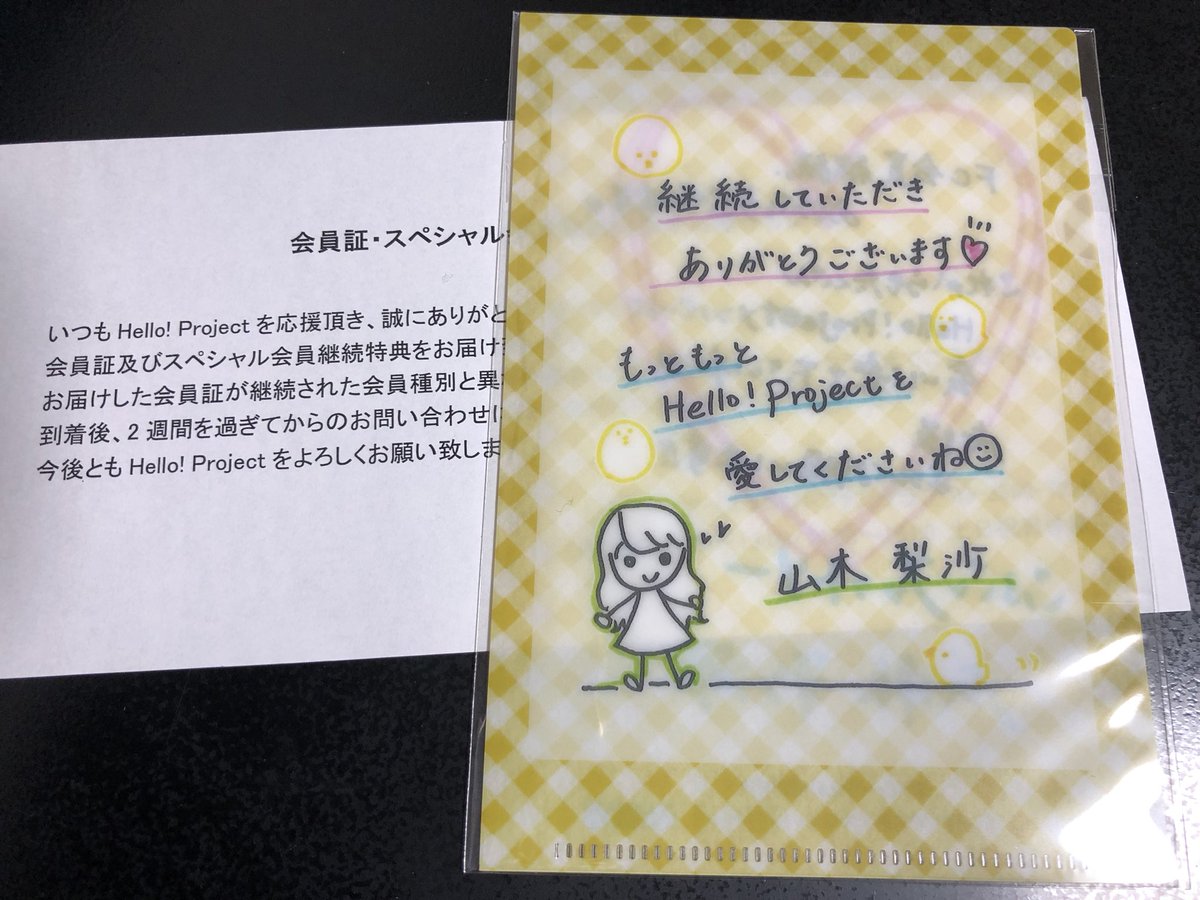 会員証・スペシャル
いつも Hello! Project を応援頂き、誠にありがと
会員証及びスペシャル会員継続特典をお届け
お届けした会員証が継続された会員種別と異
到着後、2 週間を過ぎてからのお問い合わせに
今後とも Hello! Project をよろしくお願い致しま
継続していただき
ありがとうございます
もっともっと
Hello! Projectを
愛してくださいね
山木梨沙